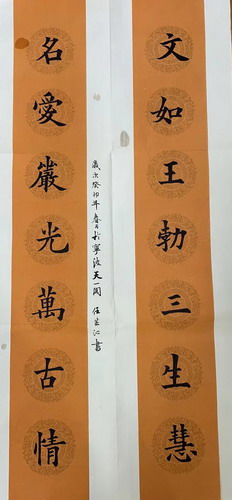 文如王勃三生慧
名愛巖光萬古情
歲次癸卯年春月於寧波天一阁 任芸沁書